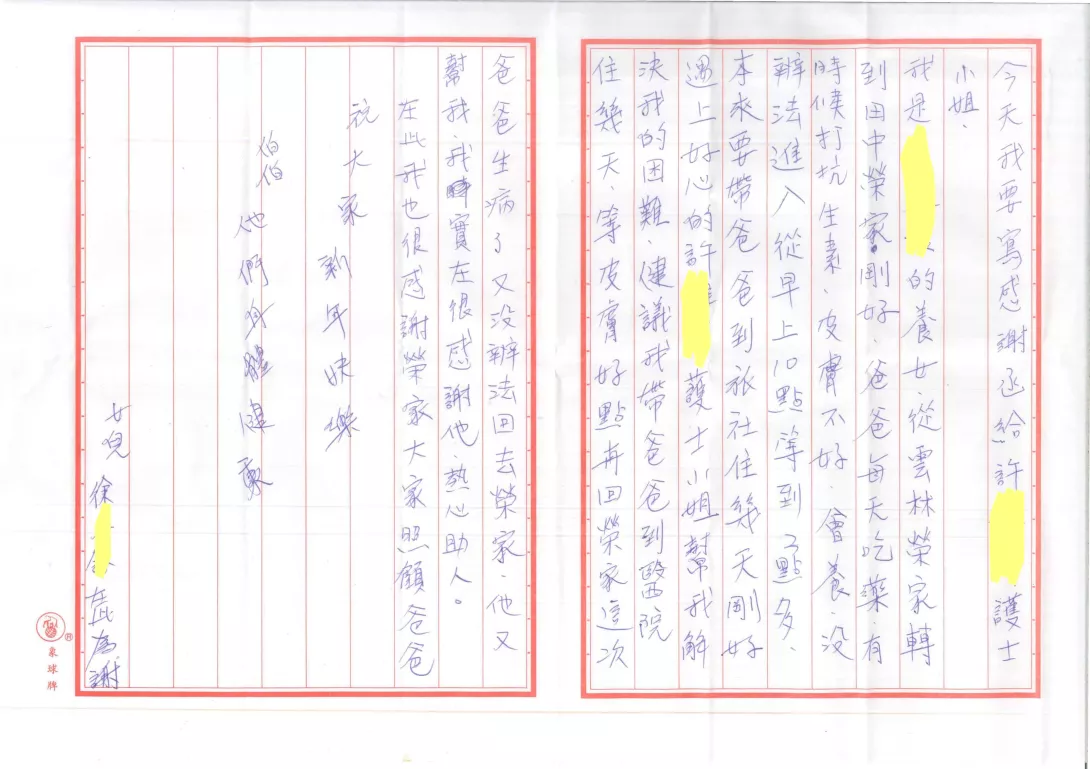 今天我要寫感謝函給許 護士
小姐、
我是 的養女、從雲林榮家轉
到田中榮家。剛好、爸爸每天吃藥、有
時候打抗生素、皮膚不好、會養、没
辦法進入從早上10點等到 點多、
本來要帶爸爸到旅社住幾天剛好
遇上好心的許 護士小姐幫我解
決我的困難、健議我帶爸爸到醫院
住幾天、等皮膚好點再回榮家這次
爸爸生病了又没辦法回去榮家、他又
幫我、我 實在很感謝他、熱心助人。
在此我也很感謝榮家大家照顧爸爸
祝大家
新年快樂
伯伯
他們身體健康
女兒 徐 在此為謝
象球牌